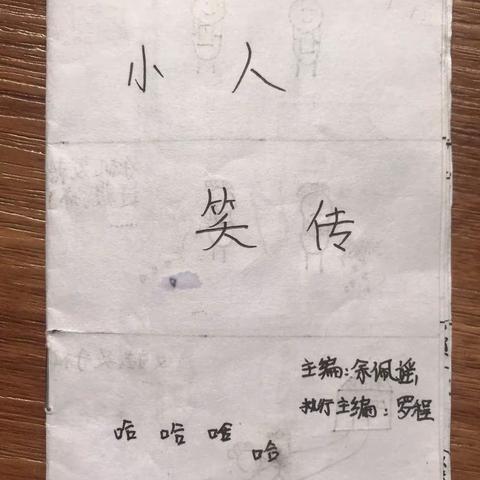 小人
笑传
主编:余佩摇
执行主编:罗程
哈哈哈
哈